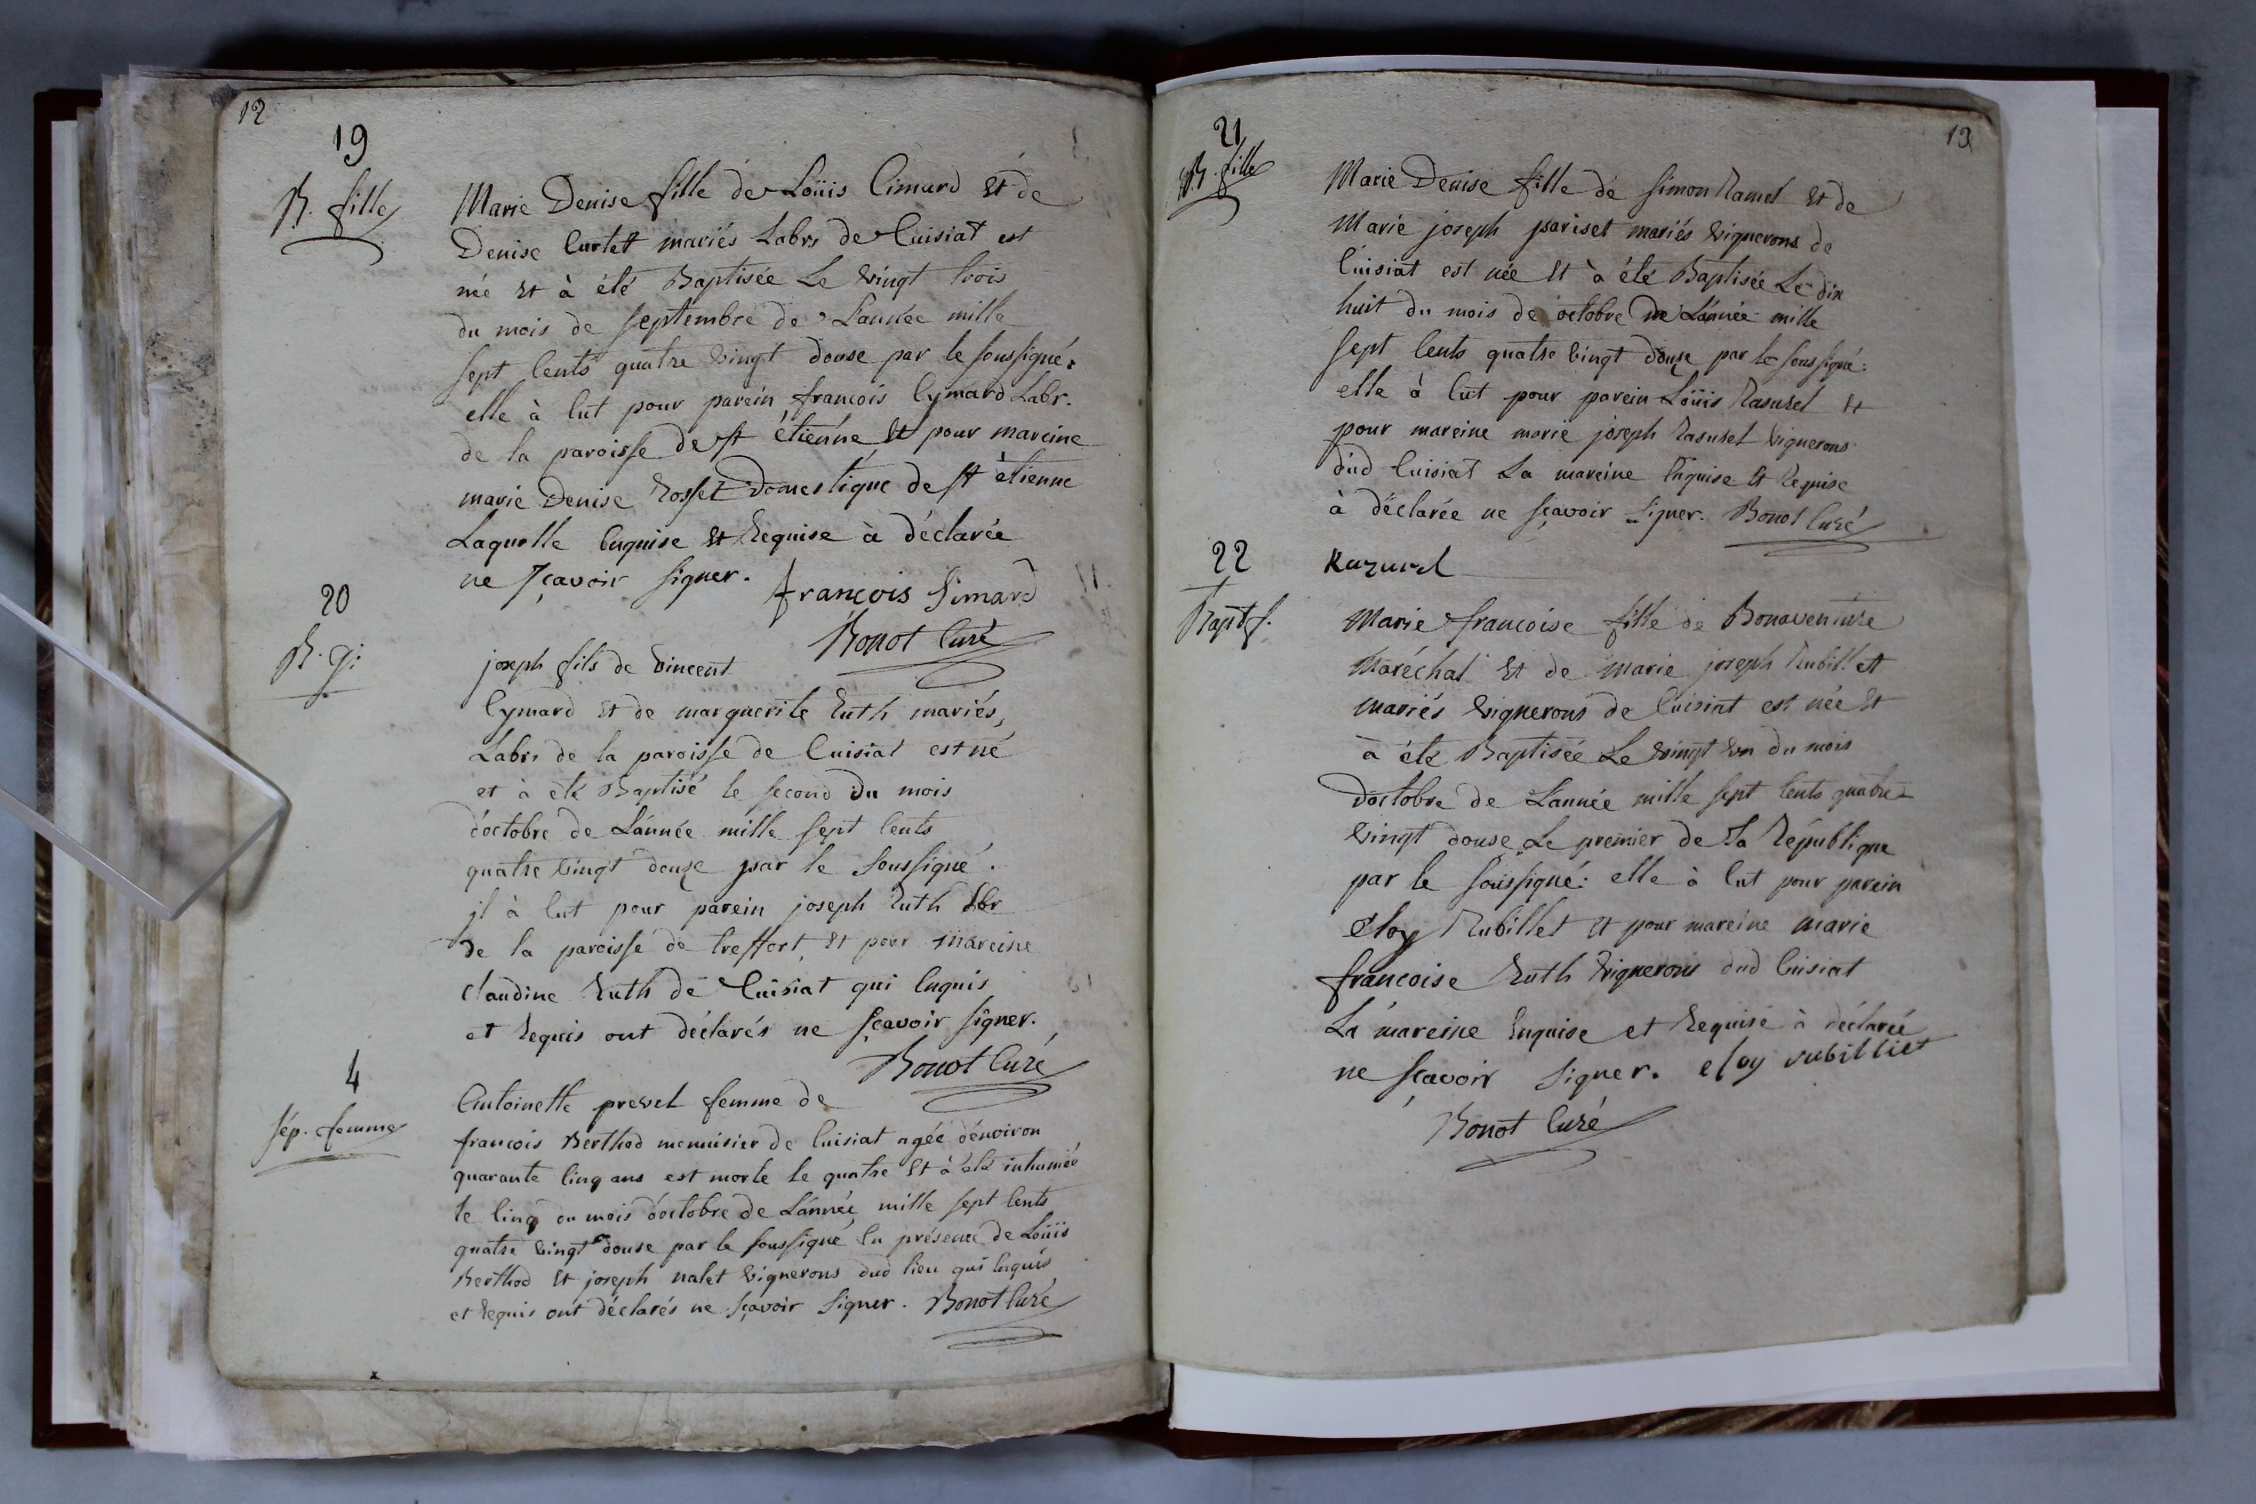 12
19
B. fille
Marie Denise fille de Loüis Cimard et de
Denise Curtet mariés Labrs de Cuisiat est
né et à été Baptisée Le vingt trois
du mois de septembre de L'année mille
sept Cents quatre vingt douse par le soussigné:
elle à Cut pour parein francois Cymard Labr.
de la paroisse de st étienne et pour mareine
marie Denise Rosset Domestique de st étienne
Laquelle Enquise et Requise à déclarée
ne sçavoir signer. francois simard
Bonot Curé
20
B. g:
joseph fils de vincent
Cymard et de marguerite Ruth mariés,
Labrs de la paroisse de Cuisiat est né
et à été Baptisé le second du mois
d'octobre de L'année mille sept Cents
quatre vingt douze par le soussigné.
jl à Cut pour parein joseph Ruth Lbr
de la paroisse de treffort, et pour mareine
claudine Ruth de Cuisiat qui Enquis
et Requis ont déclarés ne sçavoir signer.
Bonot Curé
4
sép. femme
Antoinette prevel femme de
francois Berthod menuisier de Cuisiat agée d'environ
quarante Cinq ans est morte le quatre et à été inhumée
le Cinq du mois d'octobre de L'année mille sept Cents
quatre vingt douse par le soussigné En présence de Loüis
Berthod et joseph nalet vignerons dud lieu qui Enquis
et Requis ont déclarés ne sçavoir signer. Bonot Curé
13
21
B. fille
Marie Denise fille de simon Ramel et de
Marie joseph pariset mariés vignerons de
Cuisiat est née et à été Baptisée Le dix
huit du mois de octobre de L'année mille
sept Cents quatre vingt douze par le soussigné:
elle à Cut pour parein Loüis Rasurel et
pour mareine marie joseph Rasurel vignerons
dud Cuisiat La mareine Enquise et Requise
à déclarée ne sçavoir signer. Bonot Curé
Razurel
22
Bapt f.
Marie francoise fille de Bonaventure
Maréchal et de marie joseph Rubillet
mariés vignerons de Cuisiat est née et
à été Baptisée Le vingt un du mois
d'octobre de L'année mille sept Cents quatre
vingt douse Le premier de La République
par le soussigné: elle à Cut pour parein
eloy Rubillet et pour mareine marie
francoise Ruth vignerons dud Cuisiat
La mareine Enquise et Requise à déclarée
ne sçavoir signer. eloy rubilliet
Bonot Curé